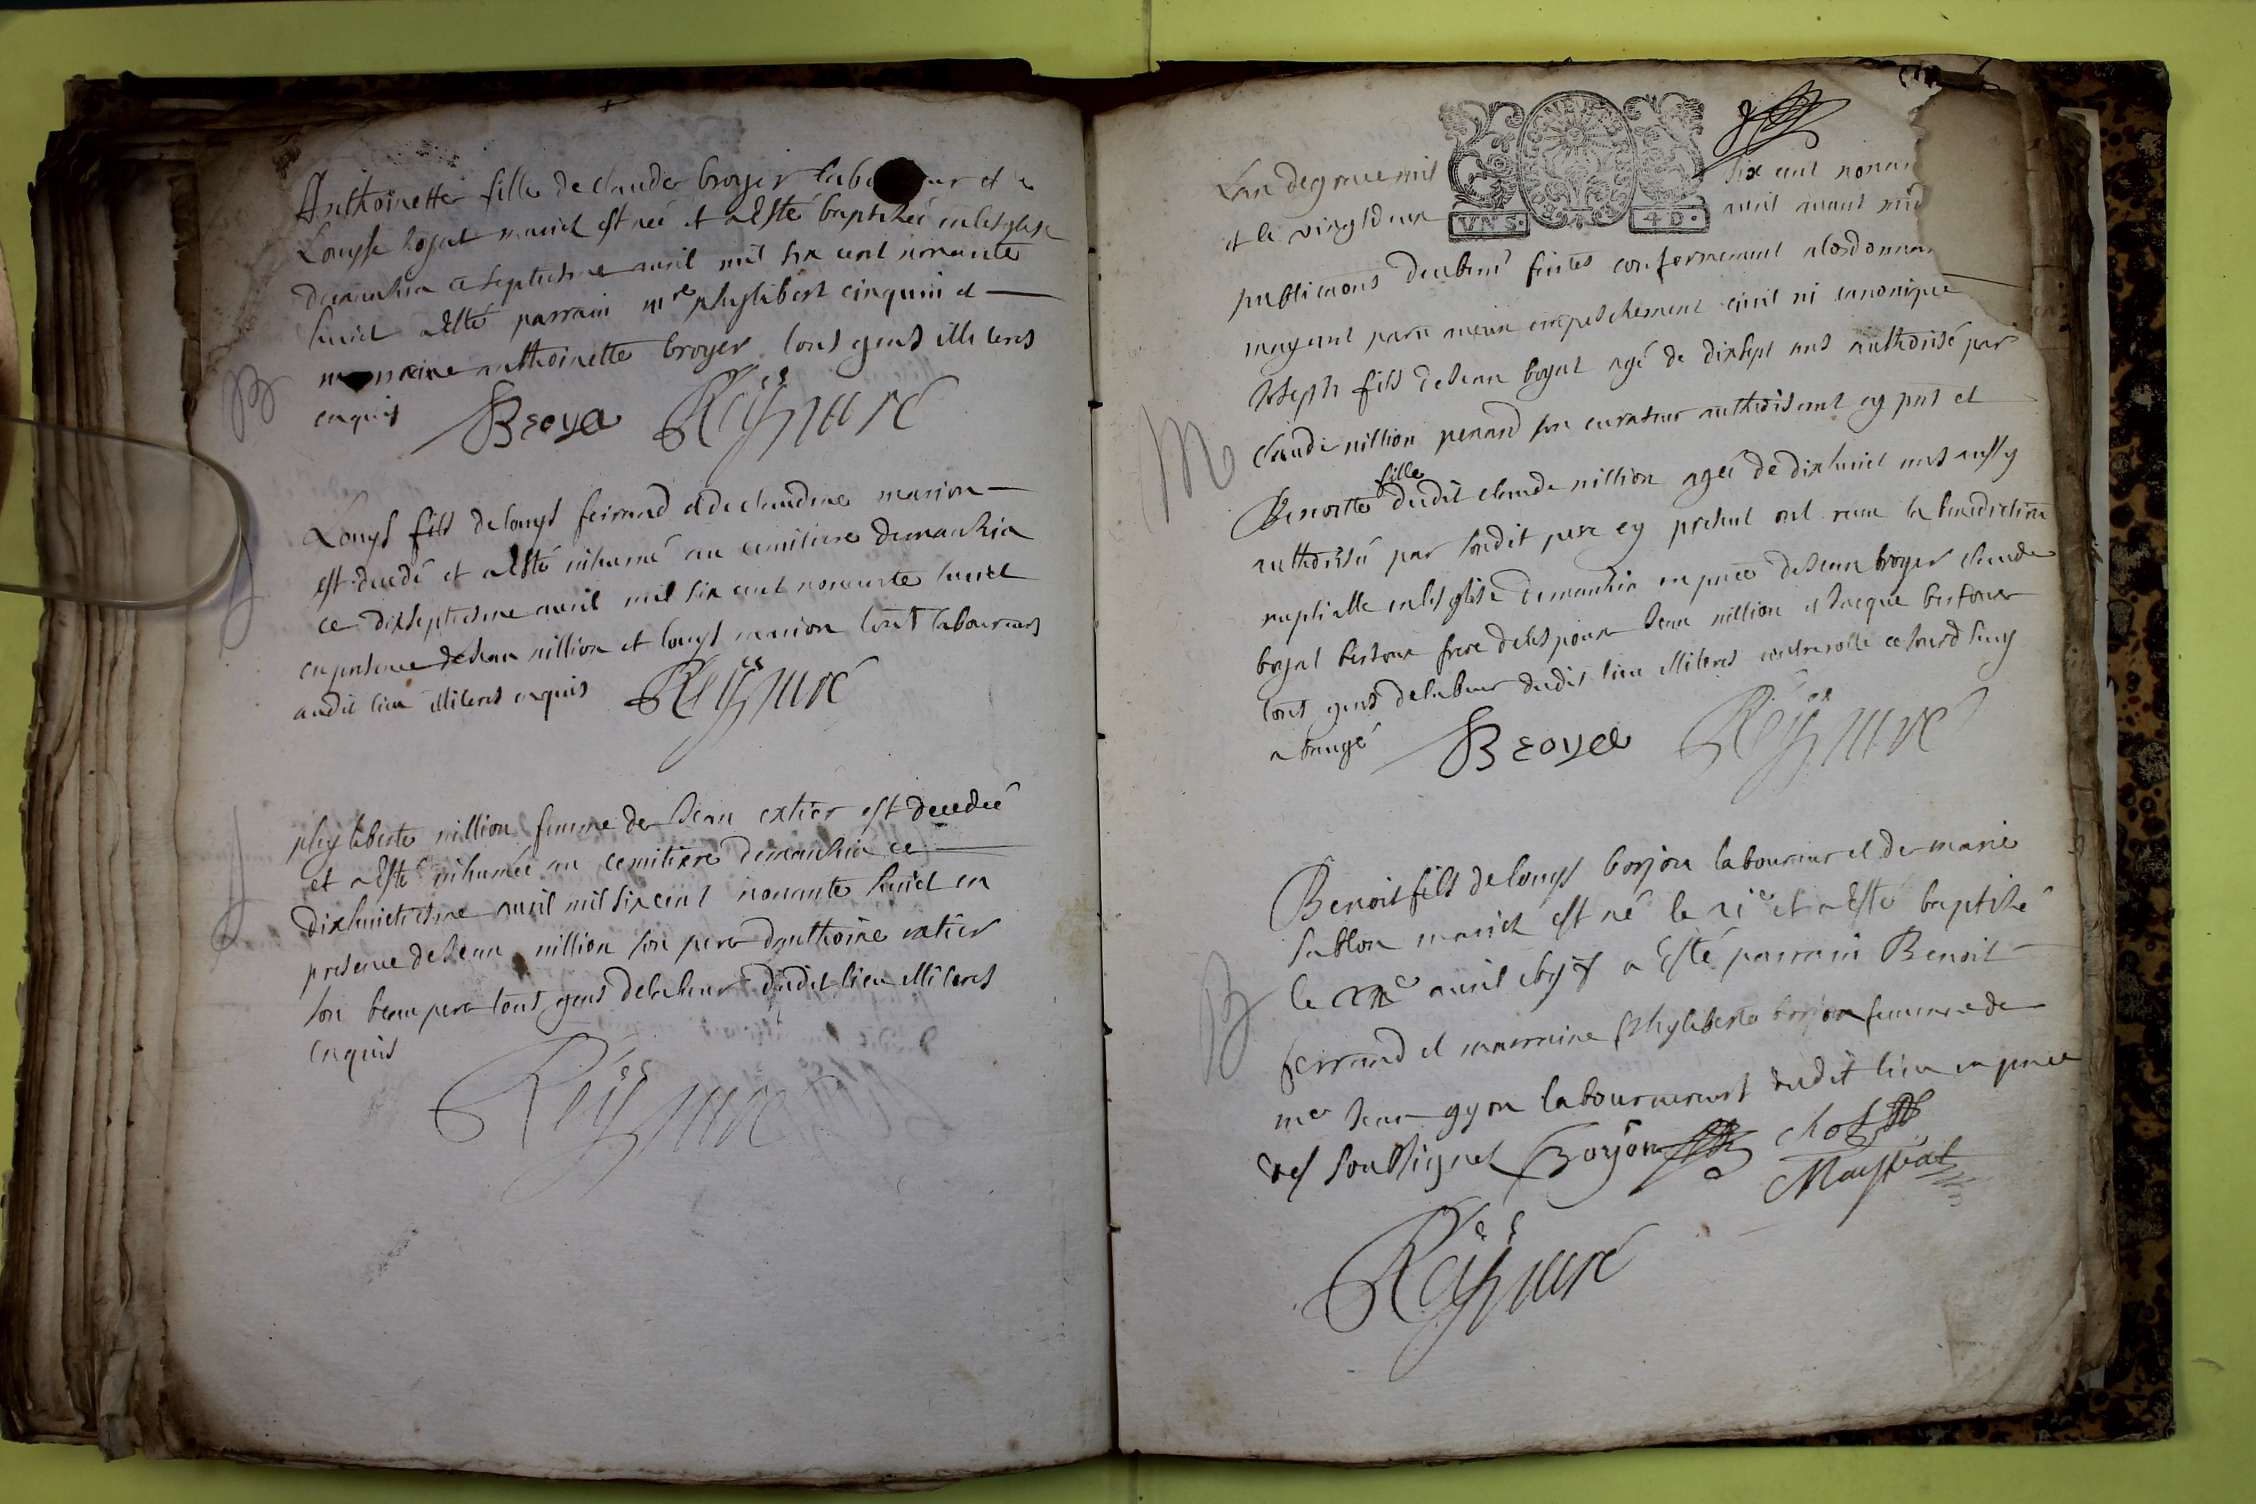 Anthoinette fille de claude broyer labo ur et de
Louyse bojat mariet est née et a esté baptisée en lesglise
demanhia ce septiesme auril mil six cent nonante
huict a esté parrain mre phylibert cinquin et
marraine anthoinette broyer tous gens illiteres
enquis Broya Reÿ curé
B
Louys fils de louys ferrand et de claudine marion
est decedé et a esté inhumé au cemitiere demanhia
ce dixseptiesme auril mil six cent nonante huict
en presence de Jean nillion et louys marion tous laboureurs
audit lieu illiteres enquis Reÿ curé
phyliberte nillion femme de Jean extier est decedeé
et a esté inhumée au cemitiere demanhia ce
dixhuictiesme auril mil six cent nonante huict en
presence de Jean nillion son pere danthoine extier
son beau pere tous gens de labeur dudit lieu illiteres
enquis
Reÿ curé
Lan de grace mil six cent nonan
et le vingtdeux auril auant mid
VNS. 4D.
publications deubemt faites conformement a lordonnan
nayant paru aucun empeschement ciuil ni canonique
Joseph fils de Jean bojat agé de dixsept ans authorisé par
claude nillion penard son curateur authorisant ey pnt et
Benoitte fille dudit claude nillion agée de dixhuict ans aussy
authorisée par sondit pere ey present ont receu la benediction
nuptialle en lesglise demanhia en pnce de Jean broyer claude
bojat frere de lespoux Jean nillion et Jacque
tous gens de labeur dudit lieu illiteres controrolle ce
a baugé Broya Reÿ curé
M
Benoit fils de louys borjon laboureur et de marie
sablon mariez est né le 21e et a esté baptisé
le auril a esté parrain Benoit
ferrand et marraine phyliberte borjon femme de
me Jean gyon laboureurs dudit lieu en pnce
des soubsignes Borjon
B
Reÿ curé